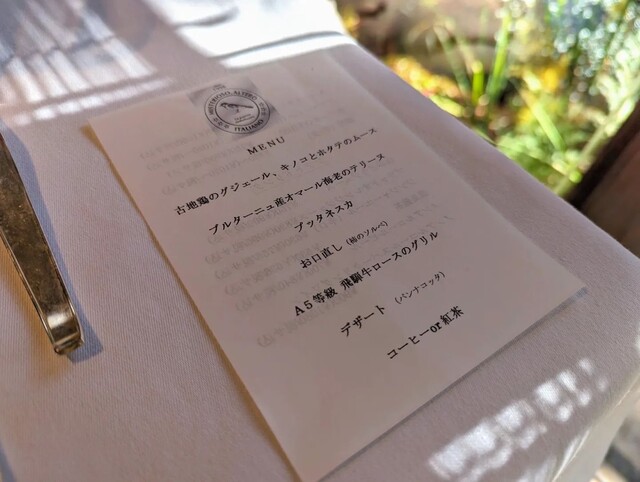 ITALIANO
MENU
古地鶏のグジェール、キノコとホタテのムース
ブルターニュ産オマール海老のテリーヌ
プッタネスカ
お口直し (柿のソルベ)
A5等級 飛騨牛ロースのグリル
デザート (パンナコッタ)
コーヒーor紅茶